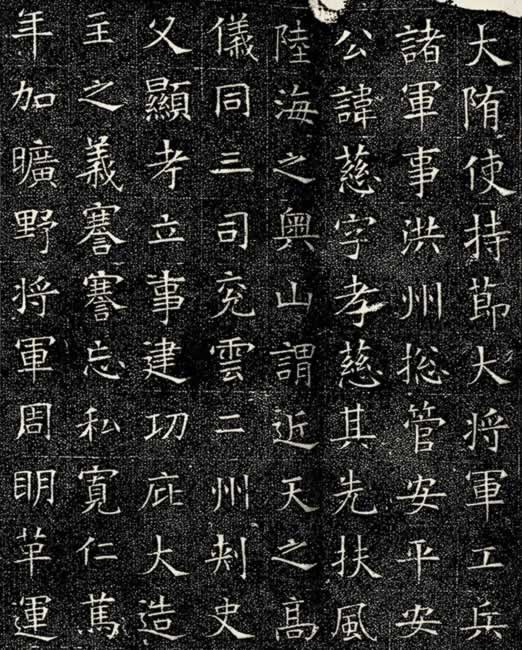 大隋使持節大将軍工兵
諸軍事洪州揔管安平安
公諱慈字孝慈其先扶風
陸海之奧山謂近天之高
儀同三司兖雲二州刾史
父顯考立事建功庇大造
主之義謇謇忘私寬仁篤
年加曠野将軍周明革運